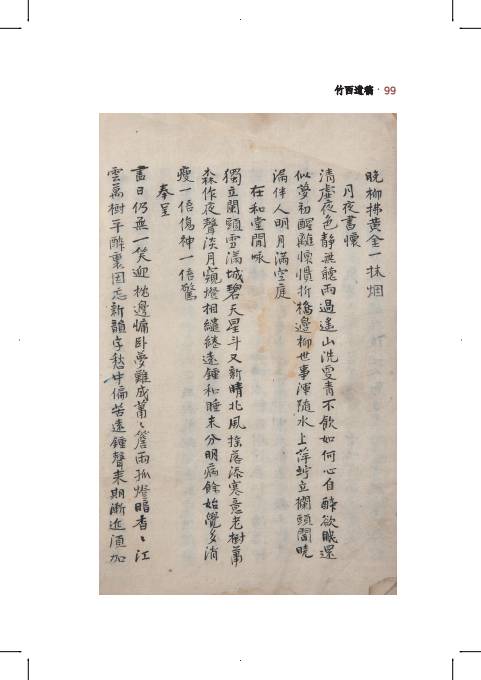 竹西遺稿 · 99
晩柳拂黃金一抹烟
月夜書懷
清虛夜色靜無聽雨過遙山洗更青不飮如何心自醉欲眠還
似夢初醒離懷慣折橋邊柳世事渾隨水上萍竚立欄頭閒曉
漏伴人明月滿空庭
在和堂閒咏
獨立闌頭雪滿城碧天星斗又新晴北風捲落添寒意老樹蕭
森作夜聲淡月窺燈相繾綣遠鍾和睡未分明病餘始覺多消
瘦一倍傷神一倍驚
奉呈
盡日仍無一笑迎枕邊慵臥夢難成蕭〻簷雨孤燈暗杳〻江
雲萬樹平醉裏因忘新韻字愁中偏苦遠鍾聲萊期漸近須加